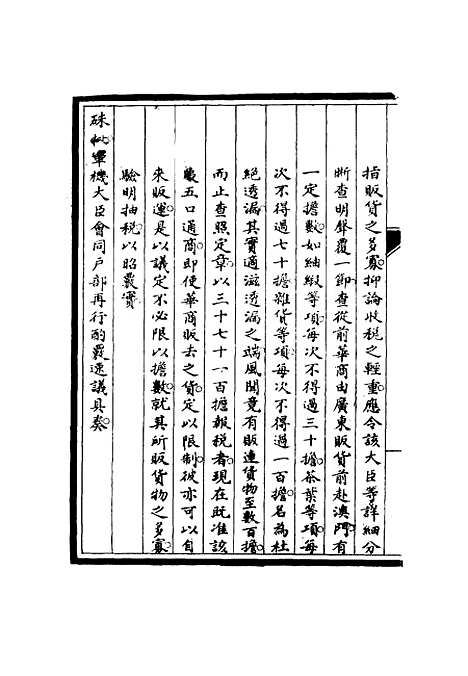 指販貨之多寡抑論收稅之輕重應令該大臣等詳細分
晰查明聲覆一節查從前華商由廣東販貨前赴澳門有
一定擔數如紬緞等項每次不得過三十擔茶葉等項每
次不得過七十擔雜貨等項每次不得過一百擔名為杜
絕透漏其實適滋透漏之端風聞竟有販運貨物至數百擔
而止查照定章以三十七十一百擔報稅者現在既准該
夷五口通商即使華商販去之貨定以限制彼亦可以自
來販運是以議定不必限以擔數就其所販貨物之多寡
驗明抽稅以昭覈實
硃批軍機大臣會同戶部再行酌覈速議具奏